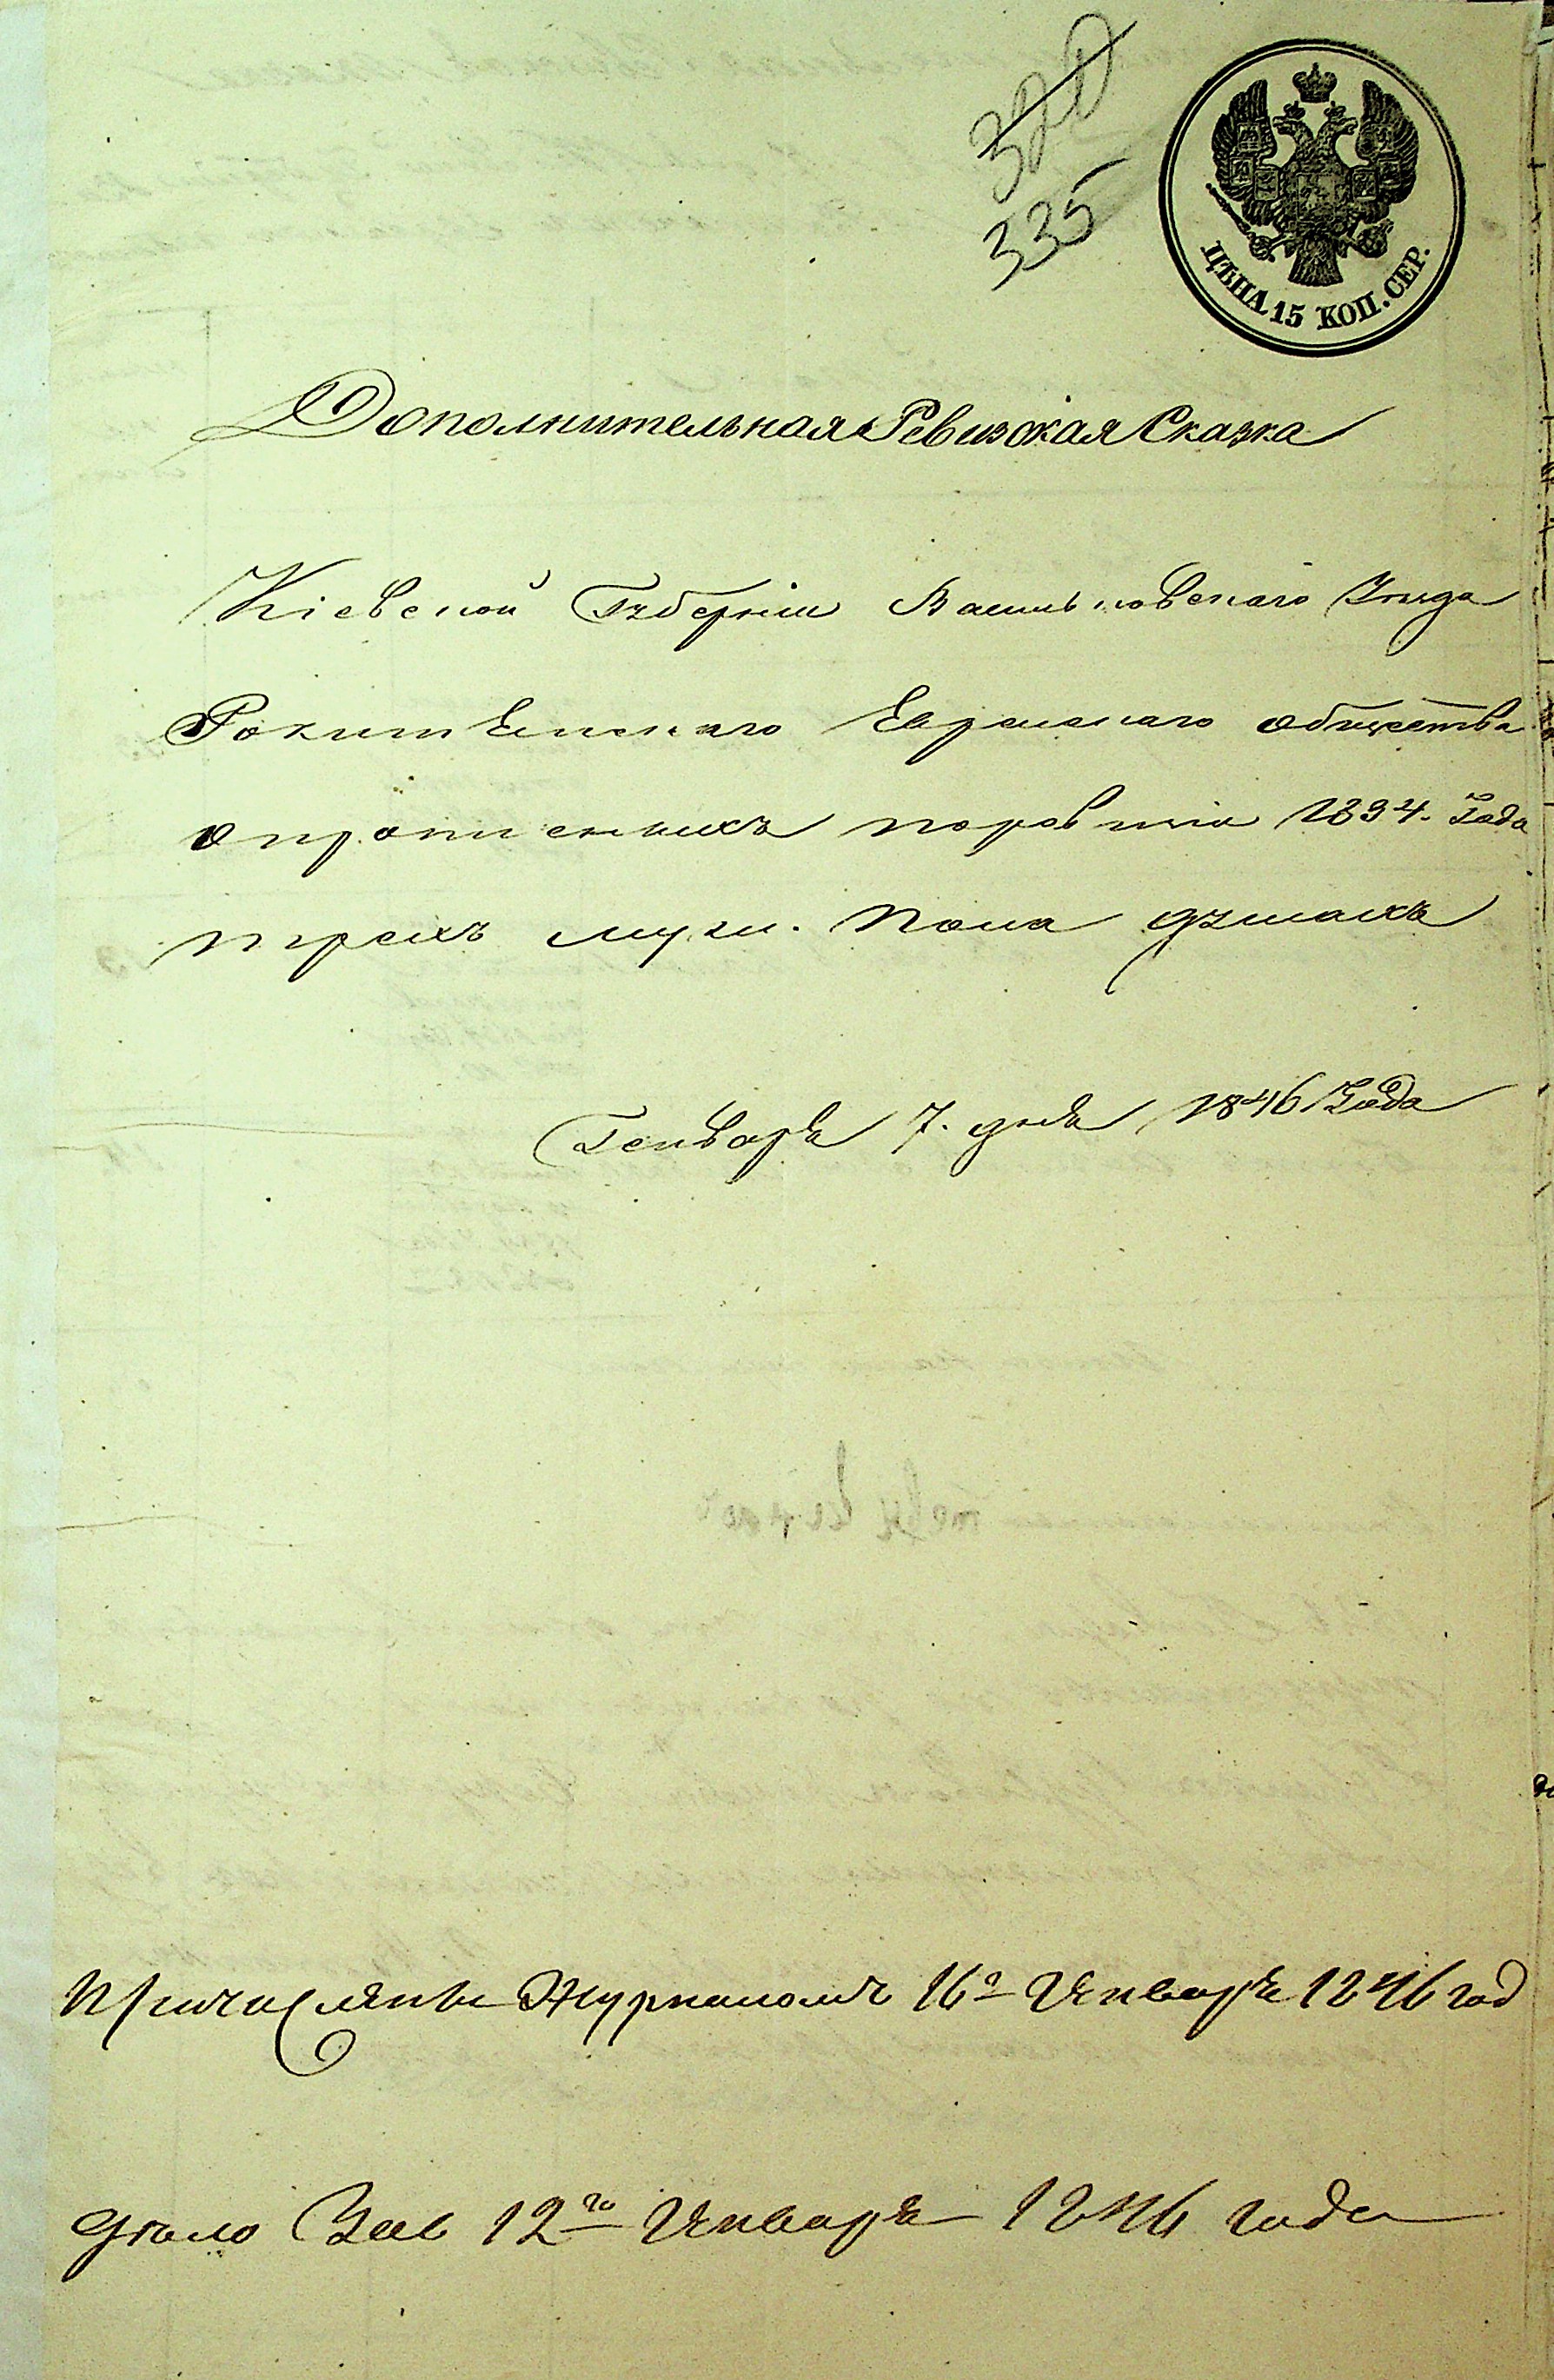 320
335
ЦѢНА 15 КОП. СЕР.
Дополнительная Ревизская Сказка
Кіевской Губерніи Васильковскаго Уѣзда
Рокитянскаго Еврейскаго общества
о прописныхъ поревизіи 1834. Года
трехъ муж. пола душахъ
Генваря 7. дня 1846 Года
Причислены Журналомъ 16 Января 1846 год
дѣло Зав 12го Января 1846 года